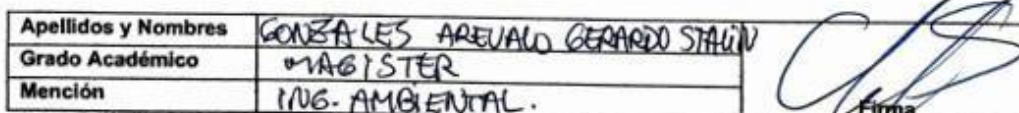 Apellidos y Nombres GONZALES AREVALO GERARDO STALIN
Grado Académico MAGISTER
Mención ING. AMBIENTAL.
Firma